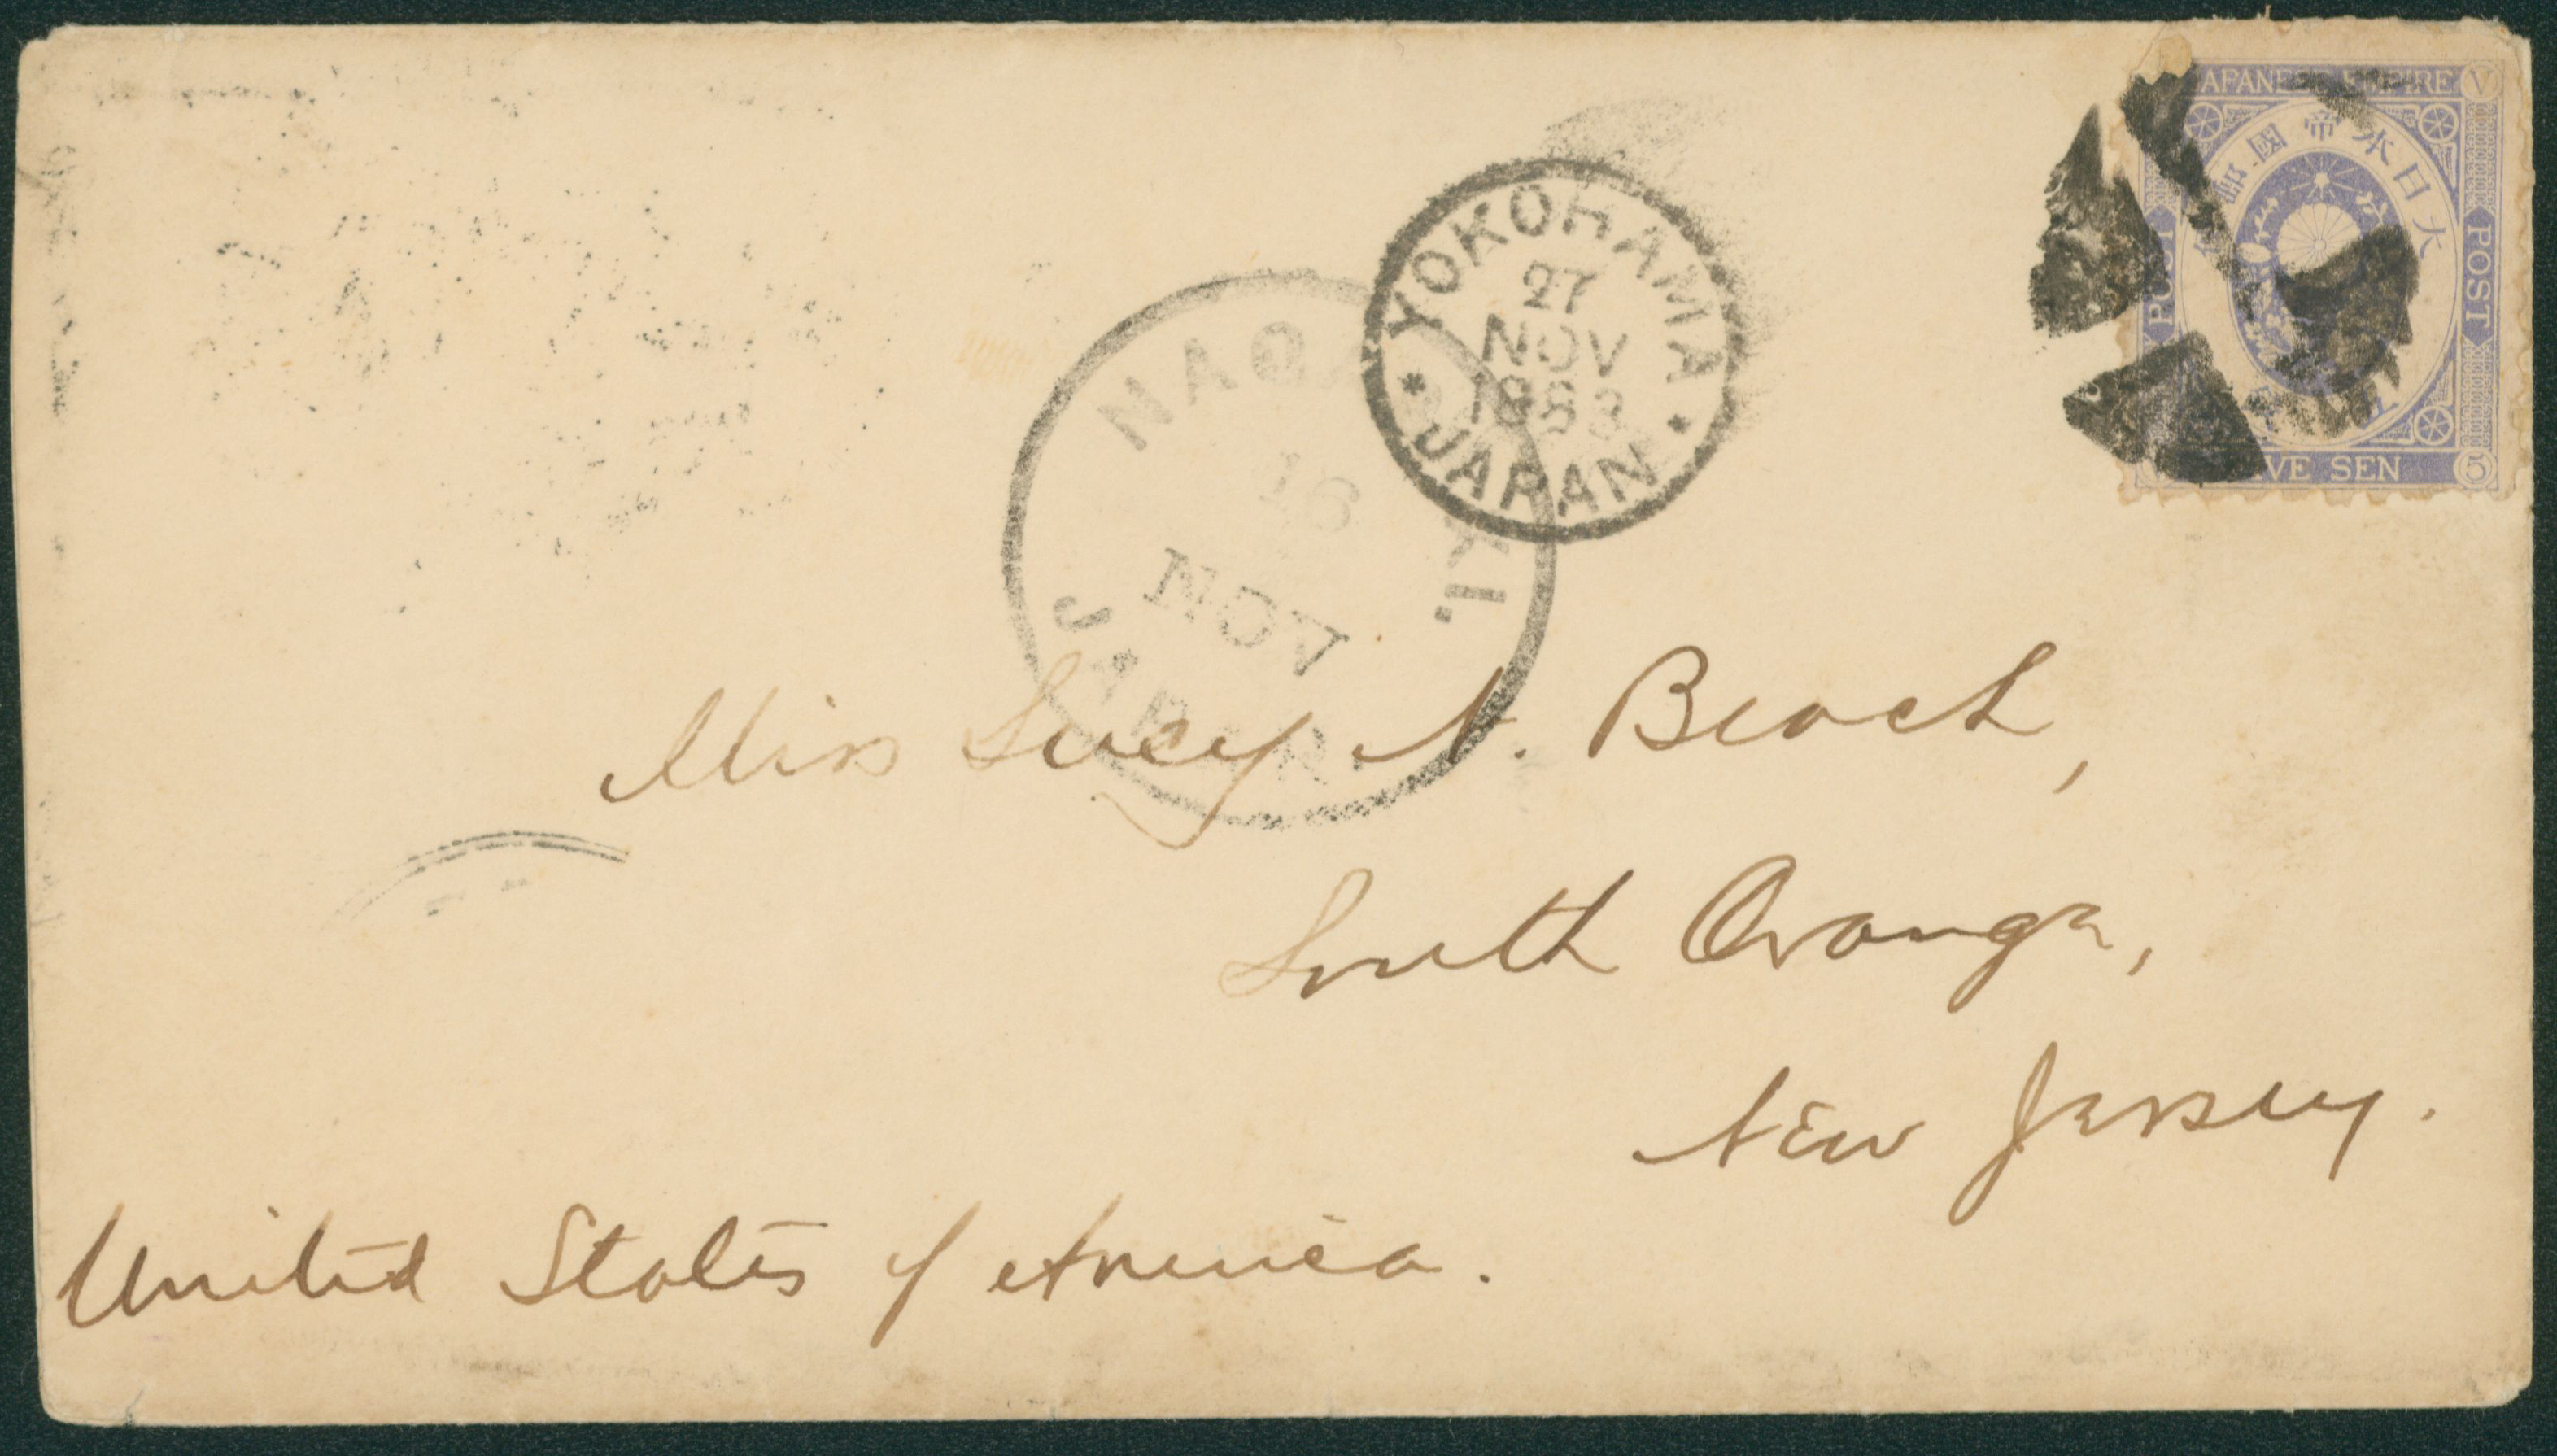 JAPANESE EMPIRE V
大日本帝國郵
POST
POST
SEN 5
YOKOHAMA
27
NOV
1883
JAPAN
16
NOV
JAPAN
Miss Lucy N. Beach,
South Orange,
New Jersey.
United States of America.